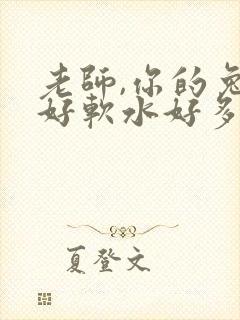 老師,你的兔
好軟水好多
夏登文